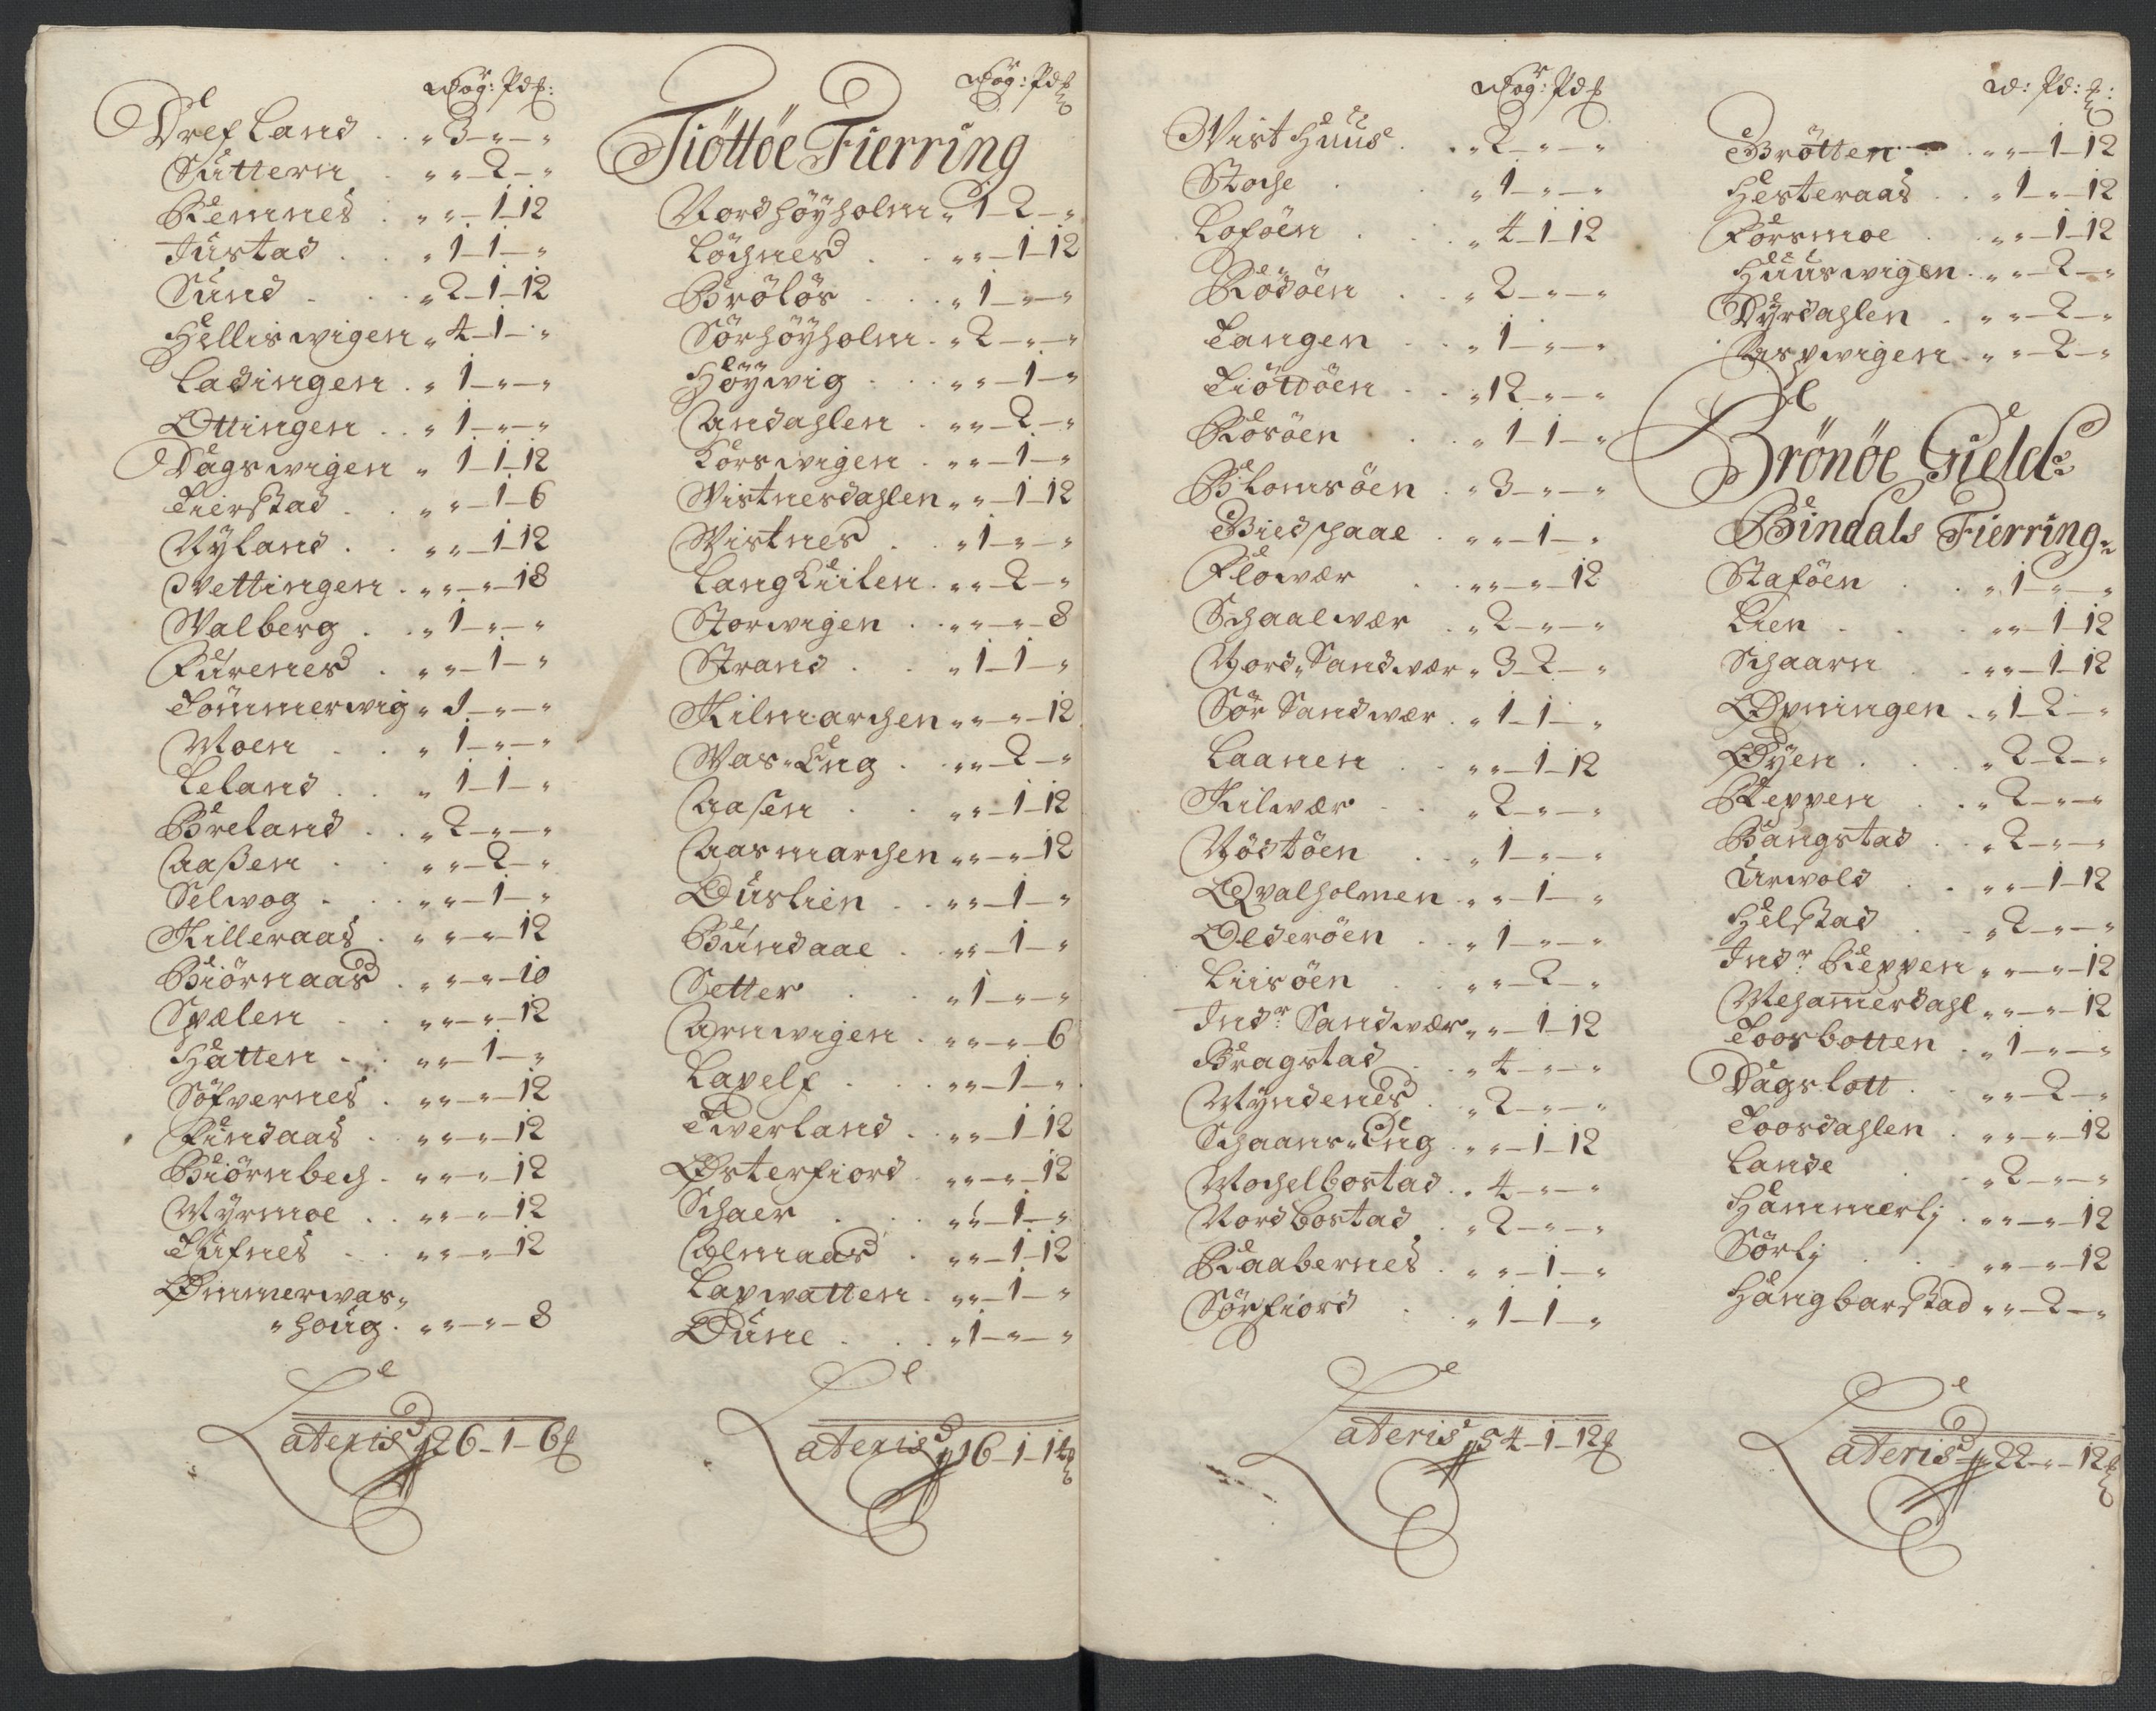 Wog: Pd ℔:
Drefland . . „ 3 – „ – „
Suttern . „ „ – 2 – „
Remnes . „ „ – 1 – 12
Justad . . „ 1 – 1 – „
Sund . . „ 2 – 1 – 12
Helliswigen „ 4 – 1 – „
Ladingen . „ 1 – „ – „
Ottingen . . „ 1 – „ – „
Dagswigen „ 1 – 1 – 12
Tierstad . . „ „ – 1 – 6
Nyland . . „ „ – 1 – 12
Vettingen . „ „ – „ – 18
Walberg . . „ 1 – „ – „
Furenes . „ „ – 1 – „
Tömmerwig „ 1 – „ – „
Moen . . „ 1 – „ – „
Leland . . „ 1 – 1 – „
Breland . . „ 2 – „ – „
Aaßen . . „ „ – 2 – „
Selwog . . „ „ – 1 – „
Killeraas . „ „ – „ – 12
Biörnaas . „ „ – „ – 10
Spælen . . „ „ – „ – 12
Hatten . . „ „ – 1 – „
Söfvernes . „ „ – „ – 12
Findaas . „ „ – „ – 12
Biörnbech . „ „ – „ – 12
Myrmoe . . „ „ – „ – 12
Tufnes . . „ „ – „ – 12
Ømmerwas„
„houg . „ „ – „ – 8
Lateris 26 – 1 – 6 ℔
Wog: Pd ℔
Tiöttöe Fierring
Nordhöyholm „ 1 – 2 – „
Löchnes . „ „ – 1 – 12
Brölös . . „ 1 – „ – „
Sörhöyholm . „ 2 – „ – „
Höywig . . „ „ – 1 – „
Andahlen . „ „ – 2 – „
Korswigen . „ „ – 1 – „
Wistnesdahlen „ „ – 1 – 12
Wistnes . „ 1 – „ – „
Langkiilen . „ „ – 2 – „
Storwigen . „ „ – „ – 8
Strand . . „ 1 – 1 – „
Kilmarchen „ „ – „ – 12
Was„Eng . „ „ – 2 – „
Aasen . „ „ – 1 – 12
Aasmarchen „ „ – „ – 12
Duslien . „ „ – 1 – „
Bundaal . „ „ – 1 – „
Setter . . „ 1 – „ – „
Arnwigen . „ „ – „ – 6
Lapelf . . „ „ – 1 – „
Twerland . „ „ – 1 – 12
Østerfiord . „ „ – „ – 12
Schaer . . „ „ – 1 – „
Almaas . „ „ – 1 – 12
Lapwatten . „ „ – 1 – „
Dune . . „ 1 – „ – „
Lateris 16 – 1 – 14 ℔
Wog: Pd ℔
Wist Huus . . „ 2 – „ – „
Stoche . . „ 1 – „ – „
Loföen . . „ 4 – 1 – 12
Rödöen . . „ 2 – „ – „
Tangen . . „ 1 – „ – „
Tiöttöen . . „ 12 – „ – „
Rosöen . . „ 1 – 1 – „
Blomsöen . „ 3 – „ – „
Biedschaal . „ „ – 1 – „
Flowær . „ „ – „ – 12
Schaalwær . „ 2 – „ – „
Nord„Sandwær „ 3 – 2 – „
Sör Sandwær . „ 1 – 1 – „
Laanen . . „ „ – 1 – 12
Kilwær . . „ 2 – „ – „
Nödtöen . „ 1 – „ – „
Qvalholmen . „ „ – 1 – „
Olderöen . . „ 1 – „ – „
Liisöen . . „ „ – 2 – „
Indr: Sandwær „ „ – 1 – 12
Bragstad . „ 4 – „ – „
Myndenes . „ 2 – „ – „
Schaans„Eng . „ „ – 1 – 12
Mochelbostad . „ 4 – „ – „
Nordbostad . „ 2 – „ – „
Raabernes . „ „ – 1 – „
Sörfiord . . „ 1 – 1 – „
Lateris 54 – 1 – 12 ℔
W: Pd: ℔:
Brötten . „ „ – 1 – 12
Hesteraas . . „ 1 – „ – 12
Forsmoe . „ „ – 1 – 12
Huuswigen . „ „ – 2 – „
Dyrdahlen . „ „ – 2 – „
Aspwigen . „ „ – 2 – „
Brönöe Gield:
Bindals Fierring„
Staföen . . „ 1 – „ – „
Lien . . „ „ – 1 – 12
Schaarn . „ „ – 1 – 12
Øpningen . „ 1 – 2 – „
Øyen . . „ 2 – 2 – „
Reppen . . „ 2 – „ – „
Bangstad . „ 2 – „ – „
Urwold . . „ „ – 1 – 12
Helstad . . „ 2 – „ – „
Indr: Reppen „ „ – „ – 12
Mehamerdahl „ „ – „ – 12
Toosbotten . „ 1 – „ – „
Dagslott . . „ „ – 2 – „
Toosdahlen . „ „ – „ – 12
Lande . „ 2 – „ – „
Hammerlj . „ „ – „ – 12
Sörlj . . „ „ – „ – 12
Hangbarstad „ „ – 2 – „
Lateris 22 – „ – 12 ℔